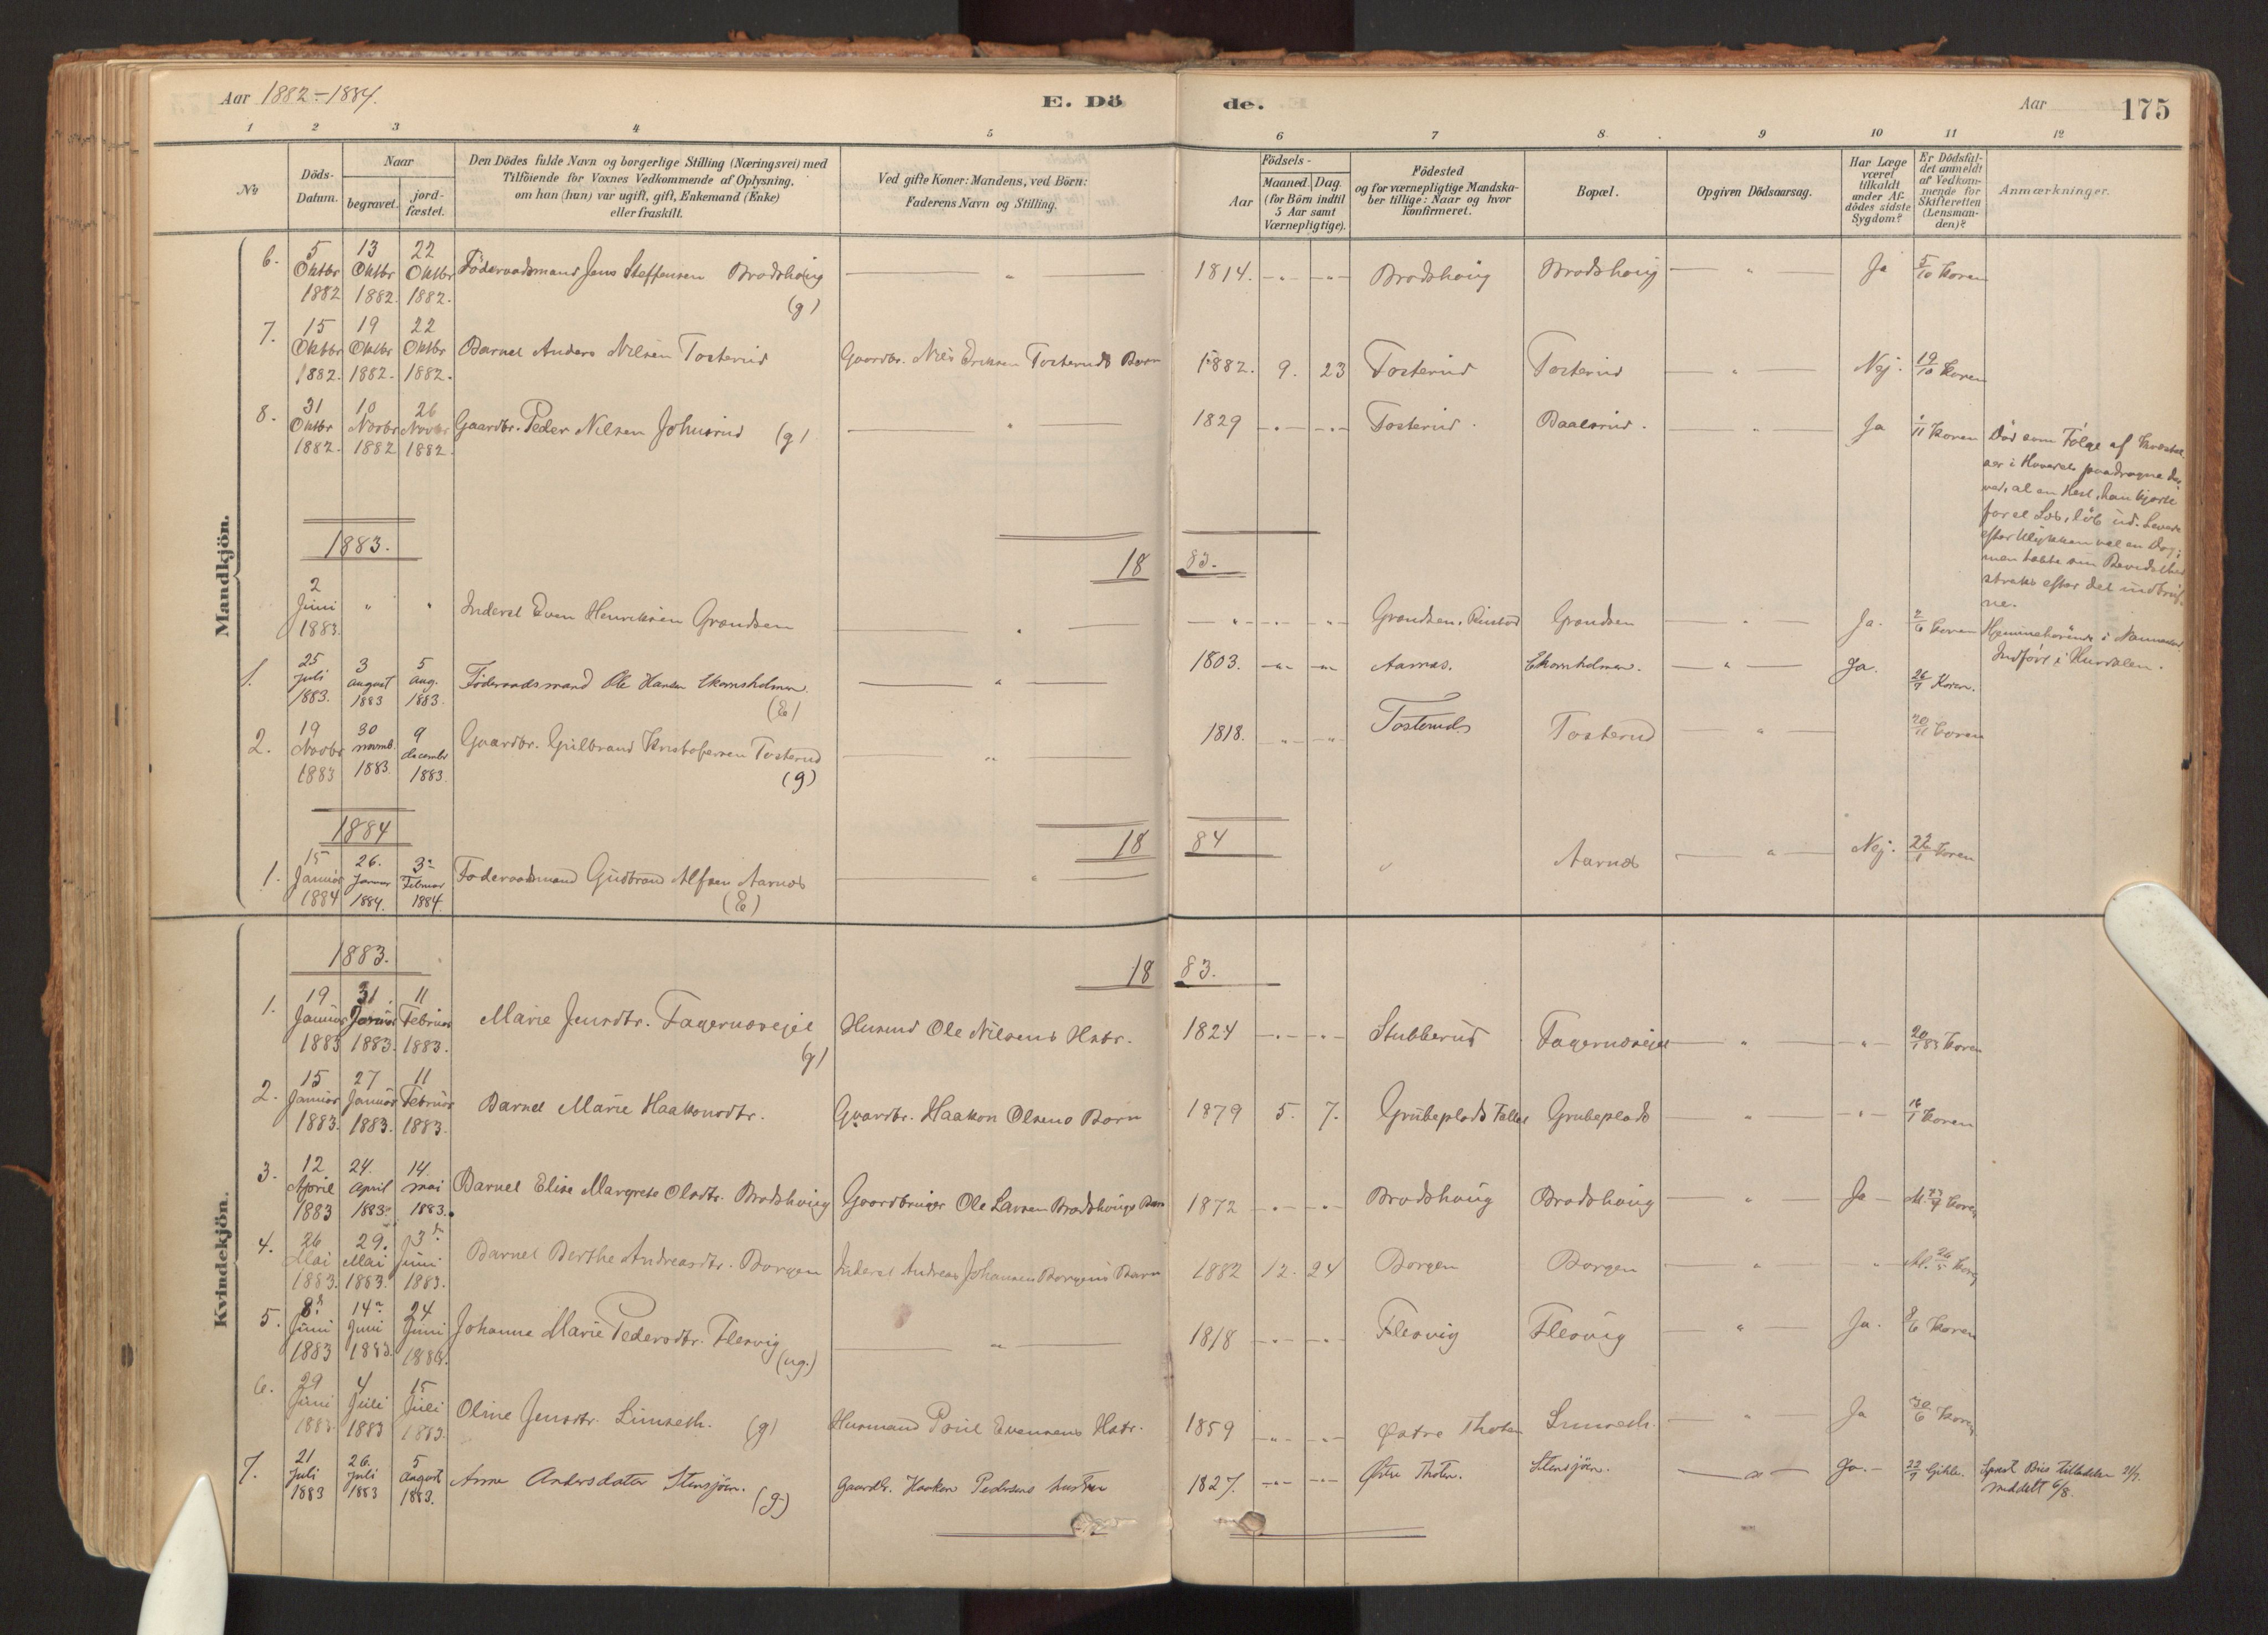 Aar 1882-1884. E. Dö de. Aar 175
1 2 3 4 5 6 7 8. 9 10 11 12
No
Döds-
Datum.
Naar
begravet.
jord-
fæstet.
Den Dödes fulde Navn og borgerlige Stilling (Næringsvei) med
Tilföiende for Voxnes Vedkommende af Oplysning,
om han (hun) var ugift, gift, Enkemand (Enke)
eller fraskilt.
Ved gifte Koner: Mandens, ved Börn:
Faderens Navn og Stilling.
Födsels-
Aar
Maaned. Dag.
(for Börn indtil
5 Aar samt
Værnepligtige).
Födested
og for værnepligtige Mandska-
ber tillige: Naar og hvor
konfirmeret.
Bopæl.
Opgiven Dödsaarsag.
Har Læge
været
tilkaldt
under Af-
dödes sidste
Sygdom?
Er Dödsfal-
det anmeldt
af Vedkom-
mende for
Skifteretten
(Lensman-
den)?
Anmærkninger.
Mandkjön.
6. 5 Oktbr 1882 13 Oktbr 1882. 22 Oktbr 1882. Föderaadsmand Jens Steffensen Brodshoug (g) " 1814. " " Brodshoug Brodshoug " Ja 5/10 Koren
7. 15 Oktbr 1882. 19 Oktbr 1882. 22 Oktbr 1882. Barnet Anders Nilsen Tosterud Gaardbr. Nils Eriksen Tosteruds Barn 1882. 9. 23 Tosterud Tosterud " Nej. 19/10 Koren
8. 31 Oktbr 1882. 10 Novbr 1882 26 Novbr 1882. Gaardbr. Peder Nilsen Johnsrud (g) " 1829 " " Tosterud. Baalsrud. " Ja 1/11 Koren
Död som Fölge af
ser i Hovedet paadragne der-
ved, at en Hest, han kjörte
for et Læs, löb ud. Levede
efter Ulykken vel en Dag;
men tabte sin Bevidsthed
straks efter det indtruf-
ne.
1883. 18 83.
2 Juni 1883. " " Inderst Even Henriksen Grandsen " " " " Grandsen. Grandsen " Ja. 2/6 Koren Hjemmehörende i Nannestad
Indfört i Hurdalen.
1. 25 Juli 1883. 3 august 1883 5 aug. 1883. Föderaadsmand Ole Hansen Ekornsholmen. (E) " 1803. " " Aarnæs. Ekornholmen. " Ja. 26/7 Koren.
2. 19 Novbr 1883 30 novmb. 1883. 9 decembr 1883. Gaardbr. Gulbrand Kristofersen Tosterud (g) " 1818. " " Tosteruds Tosterud " 20/11 Koren
1884 18 84
1. 15 Januar 1884 26. Januar 1884. 3 Februar 1884. Föderaadsmand Gudbrand Alfsen Aarnæs (E) " " Aarnæs " Nej. 22/1 Koren
Kvindekjön.
1883. 18 83.
1. 19 Januar 1883 31. Januar 1883. 11 Februar 1883. Marie Jensdtr. Fagernæsejet (g) Husmd Ole Nilsens Hstr. 1824 " " Stubberud Fagernæsejet " " 20/1 83 Koren
2. 15 Januar 1883. 27 Januar 1883. 11 Februar 1883. Barnet Marie Haakonsdtr. Gaardbr. Haakon Olsens Barn 1879 5. 7. Grubeplads Grubeplads " " 16/1 Koren
3. 12 April 1883 24. april 1883. 14. mai 1883. Barnet Elise Margrete Olsdtr. Brodshoug Gaardbruger Ole Larsen Brodshougs Barn 1872 " " Brodshoug Brodshoug " Ja Koren
4. 26 Mai 1883. 29. Mai 1883. 3 Juni 1883. Barnet Berthe Andreasdtr. Borgen Inderst Andreas Johansen Borgens Barn 1882 12. 24 Borgen Borgen " " 26/5 Koren
5. 8 Juni 1883 14 Juni 1883. 24 Juni 1883. Johanne Marie Pedersdtr. Flesvig (ug.) " 1818 " " Flesvig Flesvig " Ja. 8/6 Koren
6. 29 Juni 1883. 4 Juli 1883 15 Juli 1883. Oline Jensdtr. Limseth. (g) Husmand Poul Evensens Hstr. 1859 " " Østre Thoten Limseth. " Ja 30/6 Koren
7. 21 Juli 1883 26. Juli 1883 5 august 1883. Anne Andersdatter Stensjöen. (g) Gaardbr. Haakon Pedersens hustru 1827. " " Östre Thoten. Stensjöen. " Ja. 22/7 Gihle. meddelt 6/8.